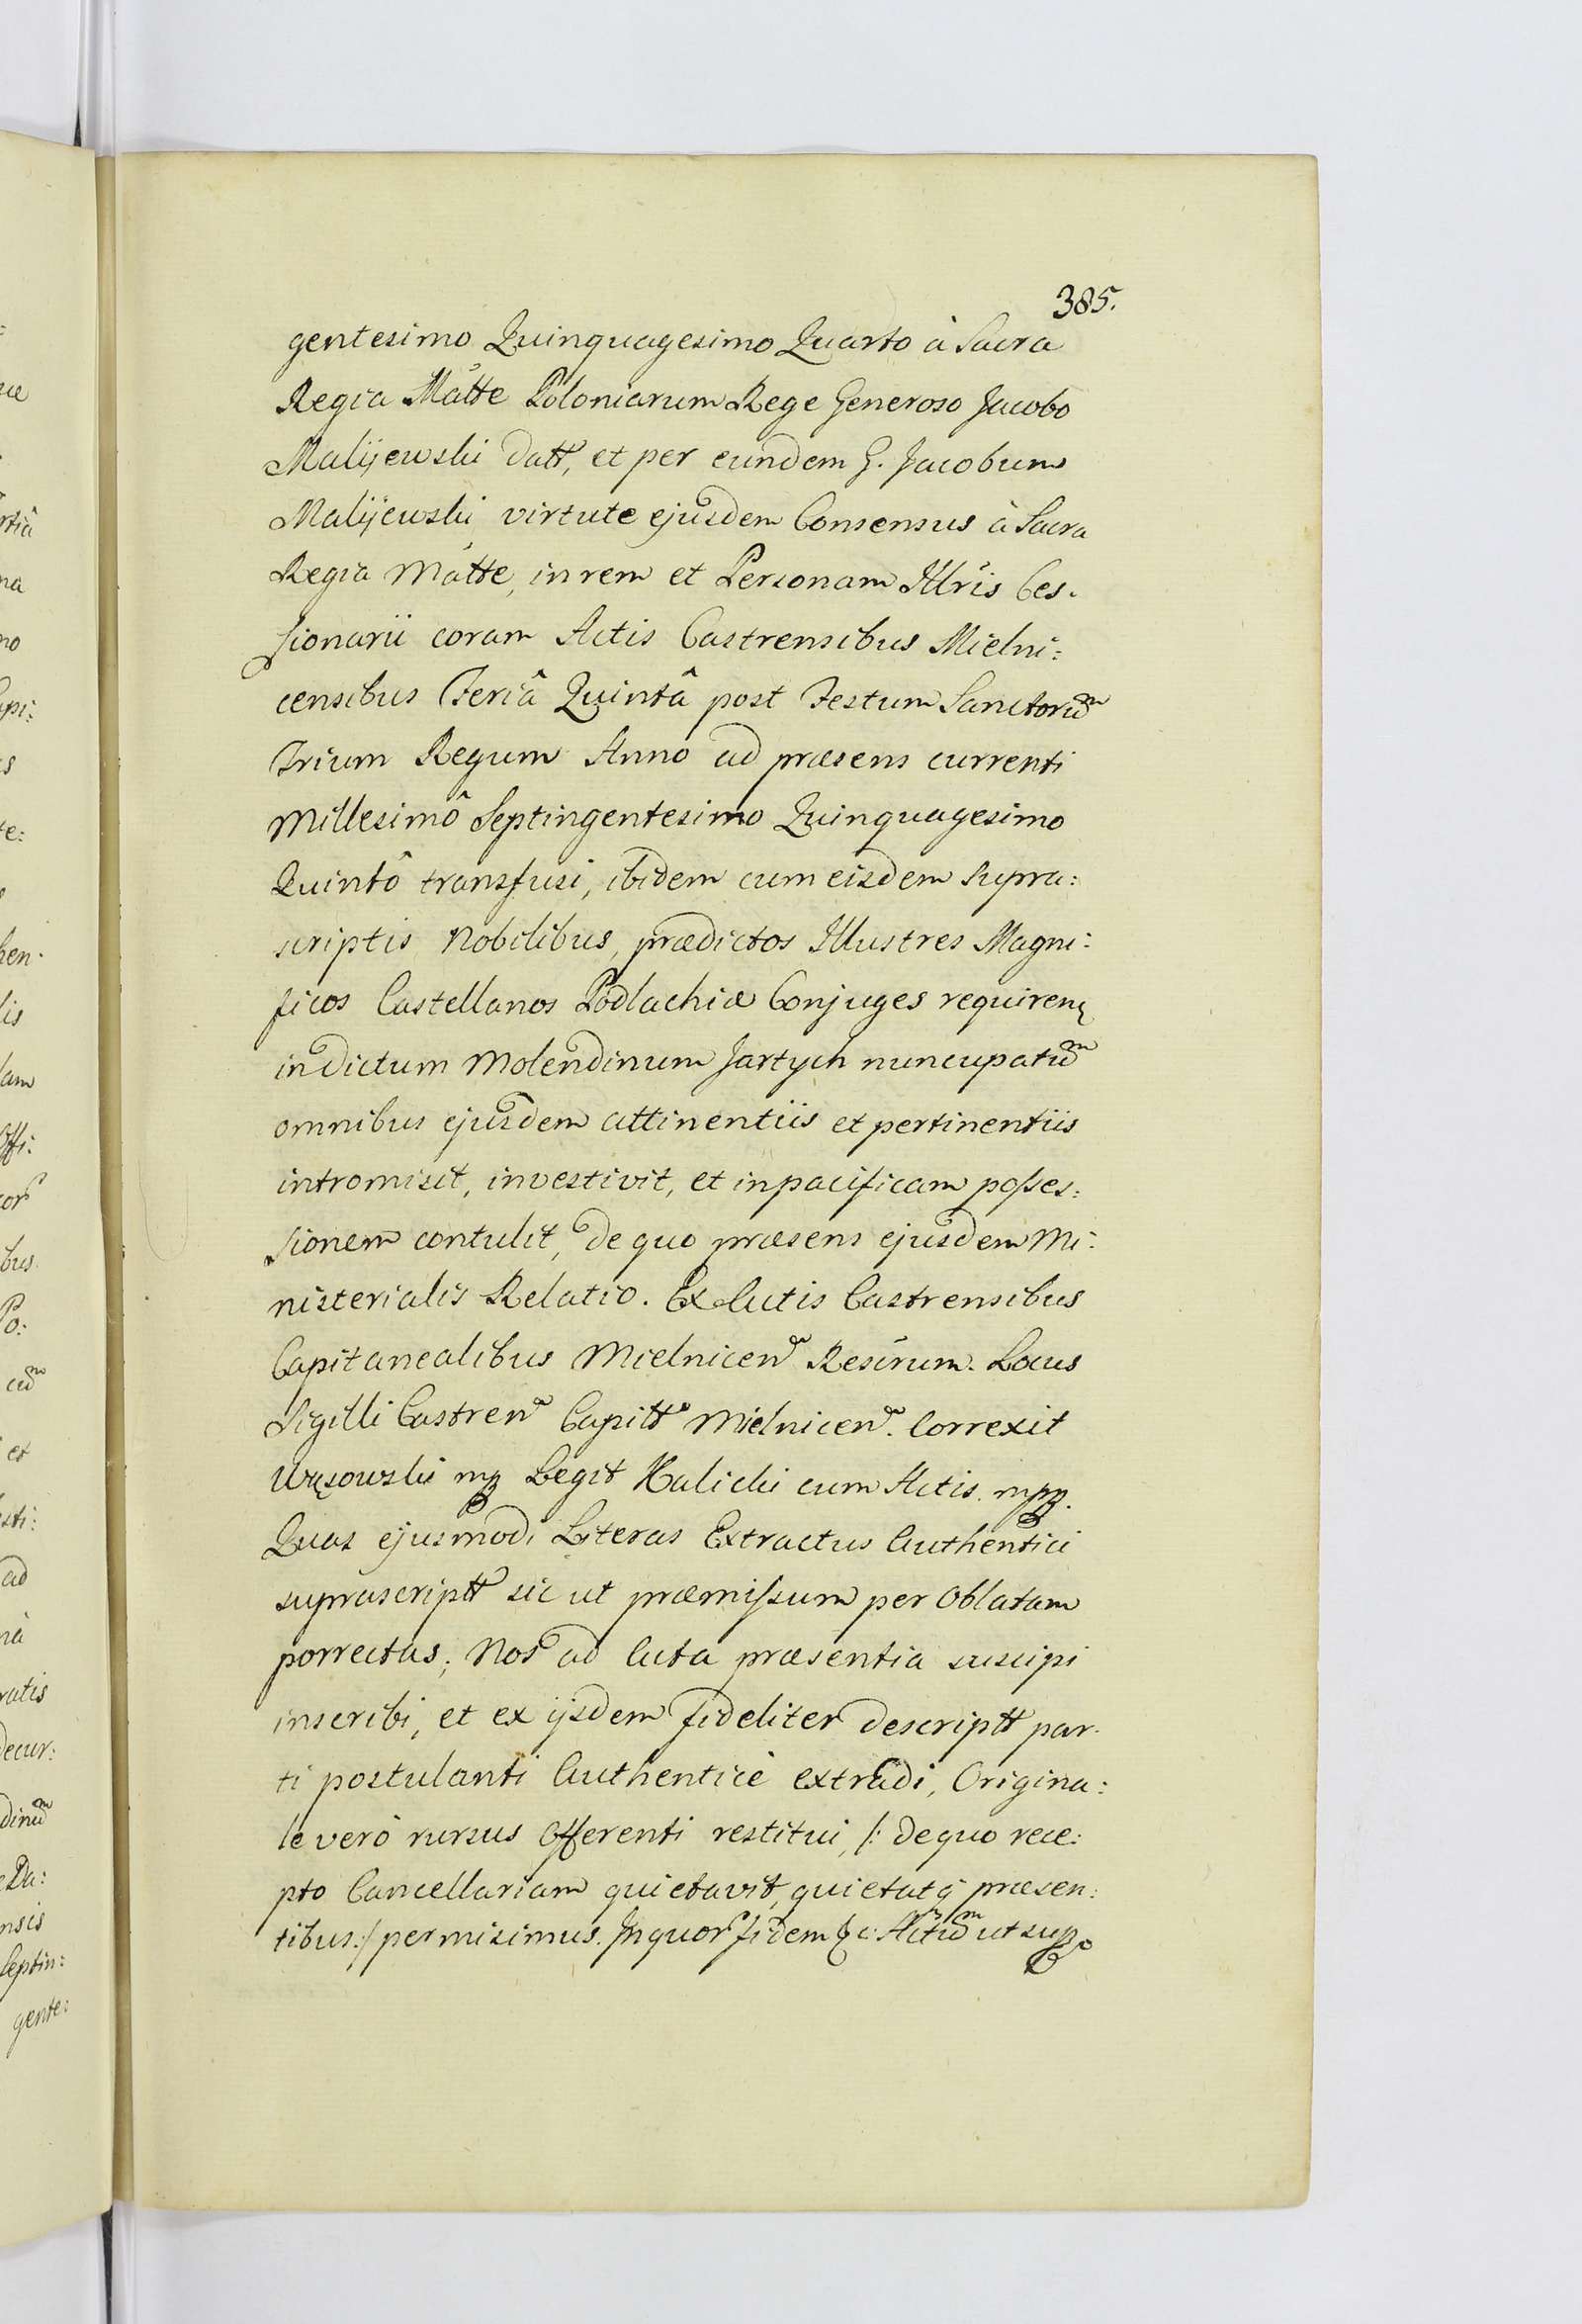 385.
gentesimo Quinquagesimo Quarto à Sacra
Regia Matte Poloniarum Rege Generoso Jacobo
Malijewski datt, et per eundem G. Jacobum
Malijewski virtute ejusdem Consensus à Sacra
Regia Matte, in rem et Personam Illris Ces-
sionarii coram Actis Castrensibus Mielni:
censibus Feriâ Quintâ post Festum Sanctorum
Trium Regum Anno ad præsens currenti
Millesimô Septingentesimo Quinquagesimo
Quintô transfusi, ibidem cum eisdem supra:
scriptis Nobilibus, prædictos Illustres Magni:
ficos Castellanos Podlachiæ Conjuges requiren
in dictum Molendinum Jartych nuncupatum
omnibus ejusdem attinentiis et pertinentiis
intromisit, investivit, et in pacificam posses:
sionem contulit, de quo præsens ejusdem Mi:
nisterialis Relatio. Ex Actis Castrensibus
Capitanealibus Mielnicen Resrum. Locus
Sigilli Castren Capitt Mielnicen. Correxit
Wąsowski mp Legit Halicki cum Actis mpp.
Quas ejusmodi Literas Extractus Authentici
suprascriptt sic ut præmissum per Oblatam
porrectas; Nos ad Acta præsentia suscipi
inscribi, et ex ijsdem fideliter descriptt par-
ti postulanti Authenticè extradi, Origina:
le verò rursus Offerenti restitui, /: de quo rece:
pto Cancellariam quietavit, quietatq præsen:
tibus :/ permisimus. In quor fidem &c: Actum ut sup
ue
rtiâ
na
no
api:
s
te:
hen-
lis
lam
Offi:
cor
bus.
Po:
et
sti:
ad
nà
ratis
decur:
dinum
Da:
nsis
Septin:
gente: